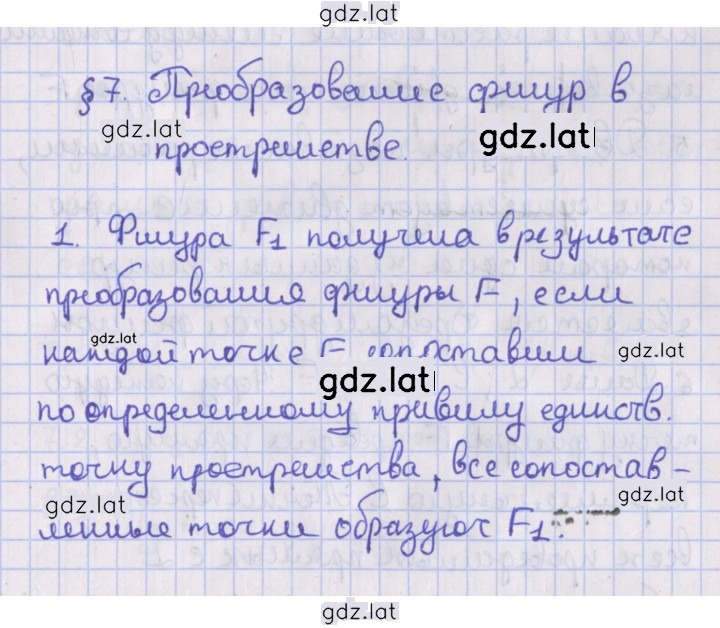 gdz.lat
§7. Преобразование фигур в
gdz.lat
gdz.lat
пространстве.
1. Фигура F1 получена в результате
преобразования фигуры F, если
gdz.lat
каждой точке F сопоставим
gdz.lat
gdz.lat
по определенному правилу единств.
точку пространства, все сопостав-
gdz.lat
gdz.lat
ленные точки образуют F1.
gdz.lat